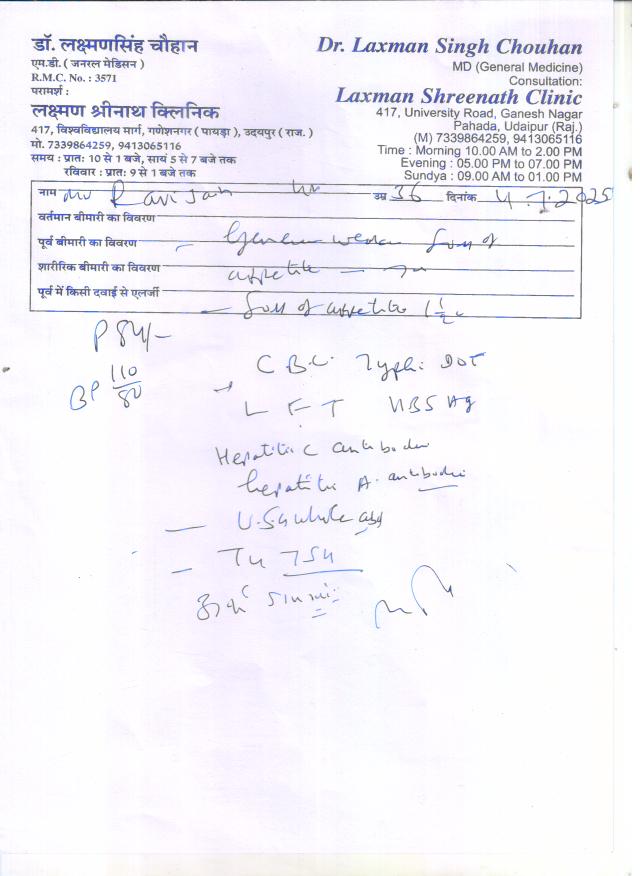 डॉ. लक्ष्मणसिंह चौहान
एम.डी. ( जनरल मेडिसन )
R.M.C. No. : 3571
परामर्श :
लक्ष्मण श्रीनाथ क्लिनिक
417, विश्वविद्यालय मार्ग, गणेशनगर ( पायड़ा ), उदयपुर ( राज. )
मो. 7339864259, 9413065116
समय : प्रात: 10 से 1 बजे, सायं 5 से 7 बजे तक
रविवार : प्रात: 9 से 1 बजे तक
Dr. Laxman Singh Chouhan
MD (General Medicine)
Consultation:
Laxman Shreenath Clinic
417, University Road, Ganesh Nagar
Pahada, Udaipur (Raj.)
(M) 7339864259, 9413065116
Time : Morning 10.00 AM to 2.00 PM
Evening : 05.00 PM to 07.00 PM
Sundya : 09.00 AM to 01.00 PM
नाम Ravi उम्र 36 दिनांक 4.7.2025
वर्तमान बीमारी का विवरण
पूर्व बीमारी का विवरण
शारीरिक बीमारी का विवरण appetite
पूर्व में किसी दवाई से एलर्जी
of appetite 1 1/2
P 84/-
BP 110/80
C.B.C. Typhi DOT
LFT HBSAg
Hepatitis C antibodies
hepatitis A. antibodies
U.S.G whole abd
T4 TSH